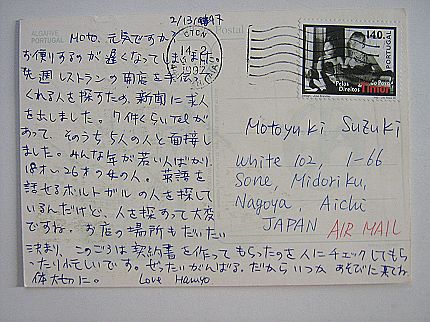 2/13/1997
ALGARVE
PORTUGAL
Postal
MOTO、元気ですか?
お便りするのが遅くなってしまいました。
先週レストランの開店を手伝って
くれる人を探すため、新聞に求人
を出しました。7件くらいTelが
あって、そのうち5人の人と面接し
ました。みんな年が若い人ばかり。
18才〜26才の4の人。英語を
話せるポルトガルの人を探して
いるんだけど、人を探すって大変
ですね。お店の場所もだいたい
決まり、このごろは契約書を作ってもらったのを人にチェックしてもら
ったり忙しいです。ぜったいがんばる。だからいつかあそびに来てね。
体大切に。 Love Haruyo
14-2
140.
PORTUGAL
Pelos Direitos
do Povo
Timor
Motoyuki Suzuki
White 102, 1-66
Sone, Midoriku,
Nagoya, Aichi
JAPAN AIR MAIL